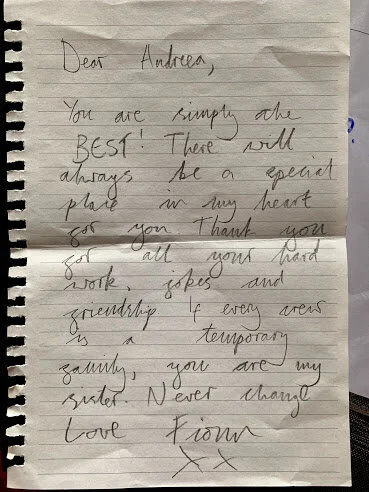 Dear Andreea,
You are simply the
BEST! There will
always be a special
place in my heart
for you Thank you
for all your hard
work, jokes and
friendship & every crew
is a temporary
family, you are my
sister. Never change
Love Fionn
XX